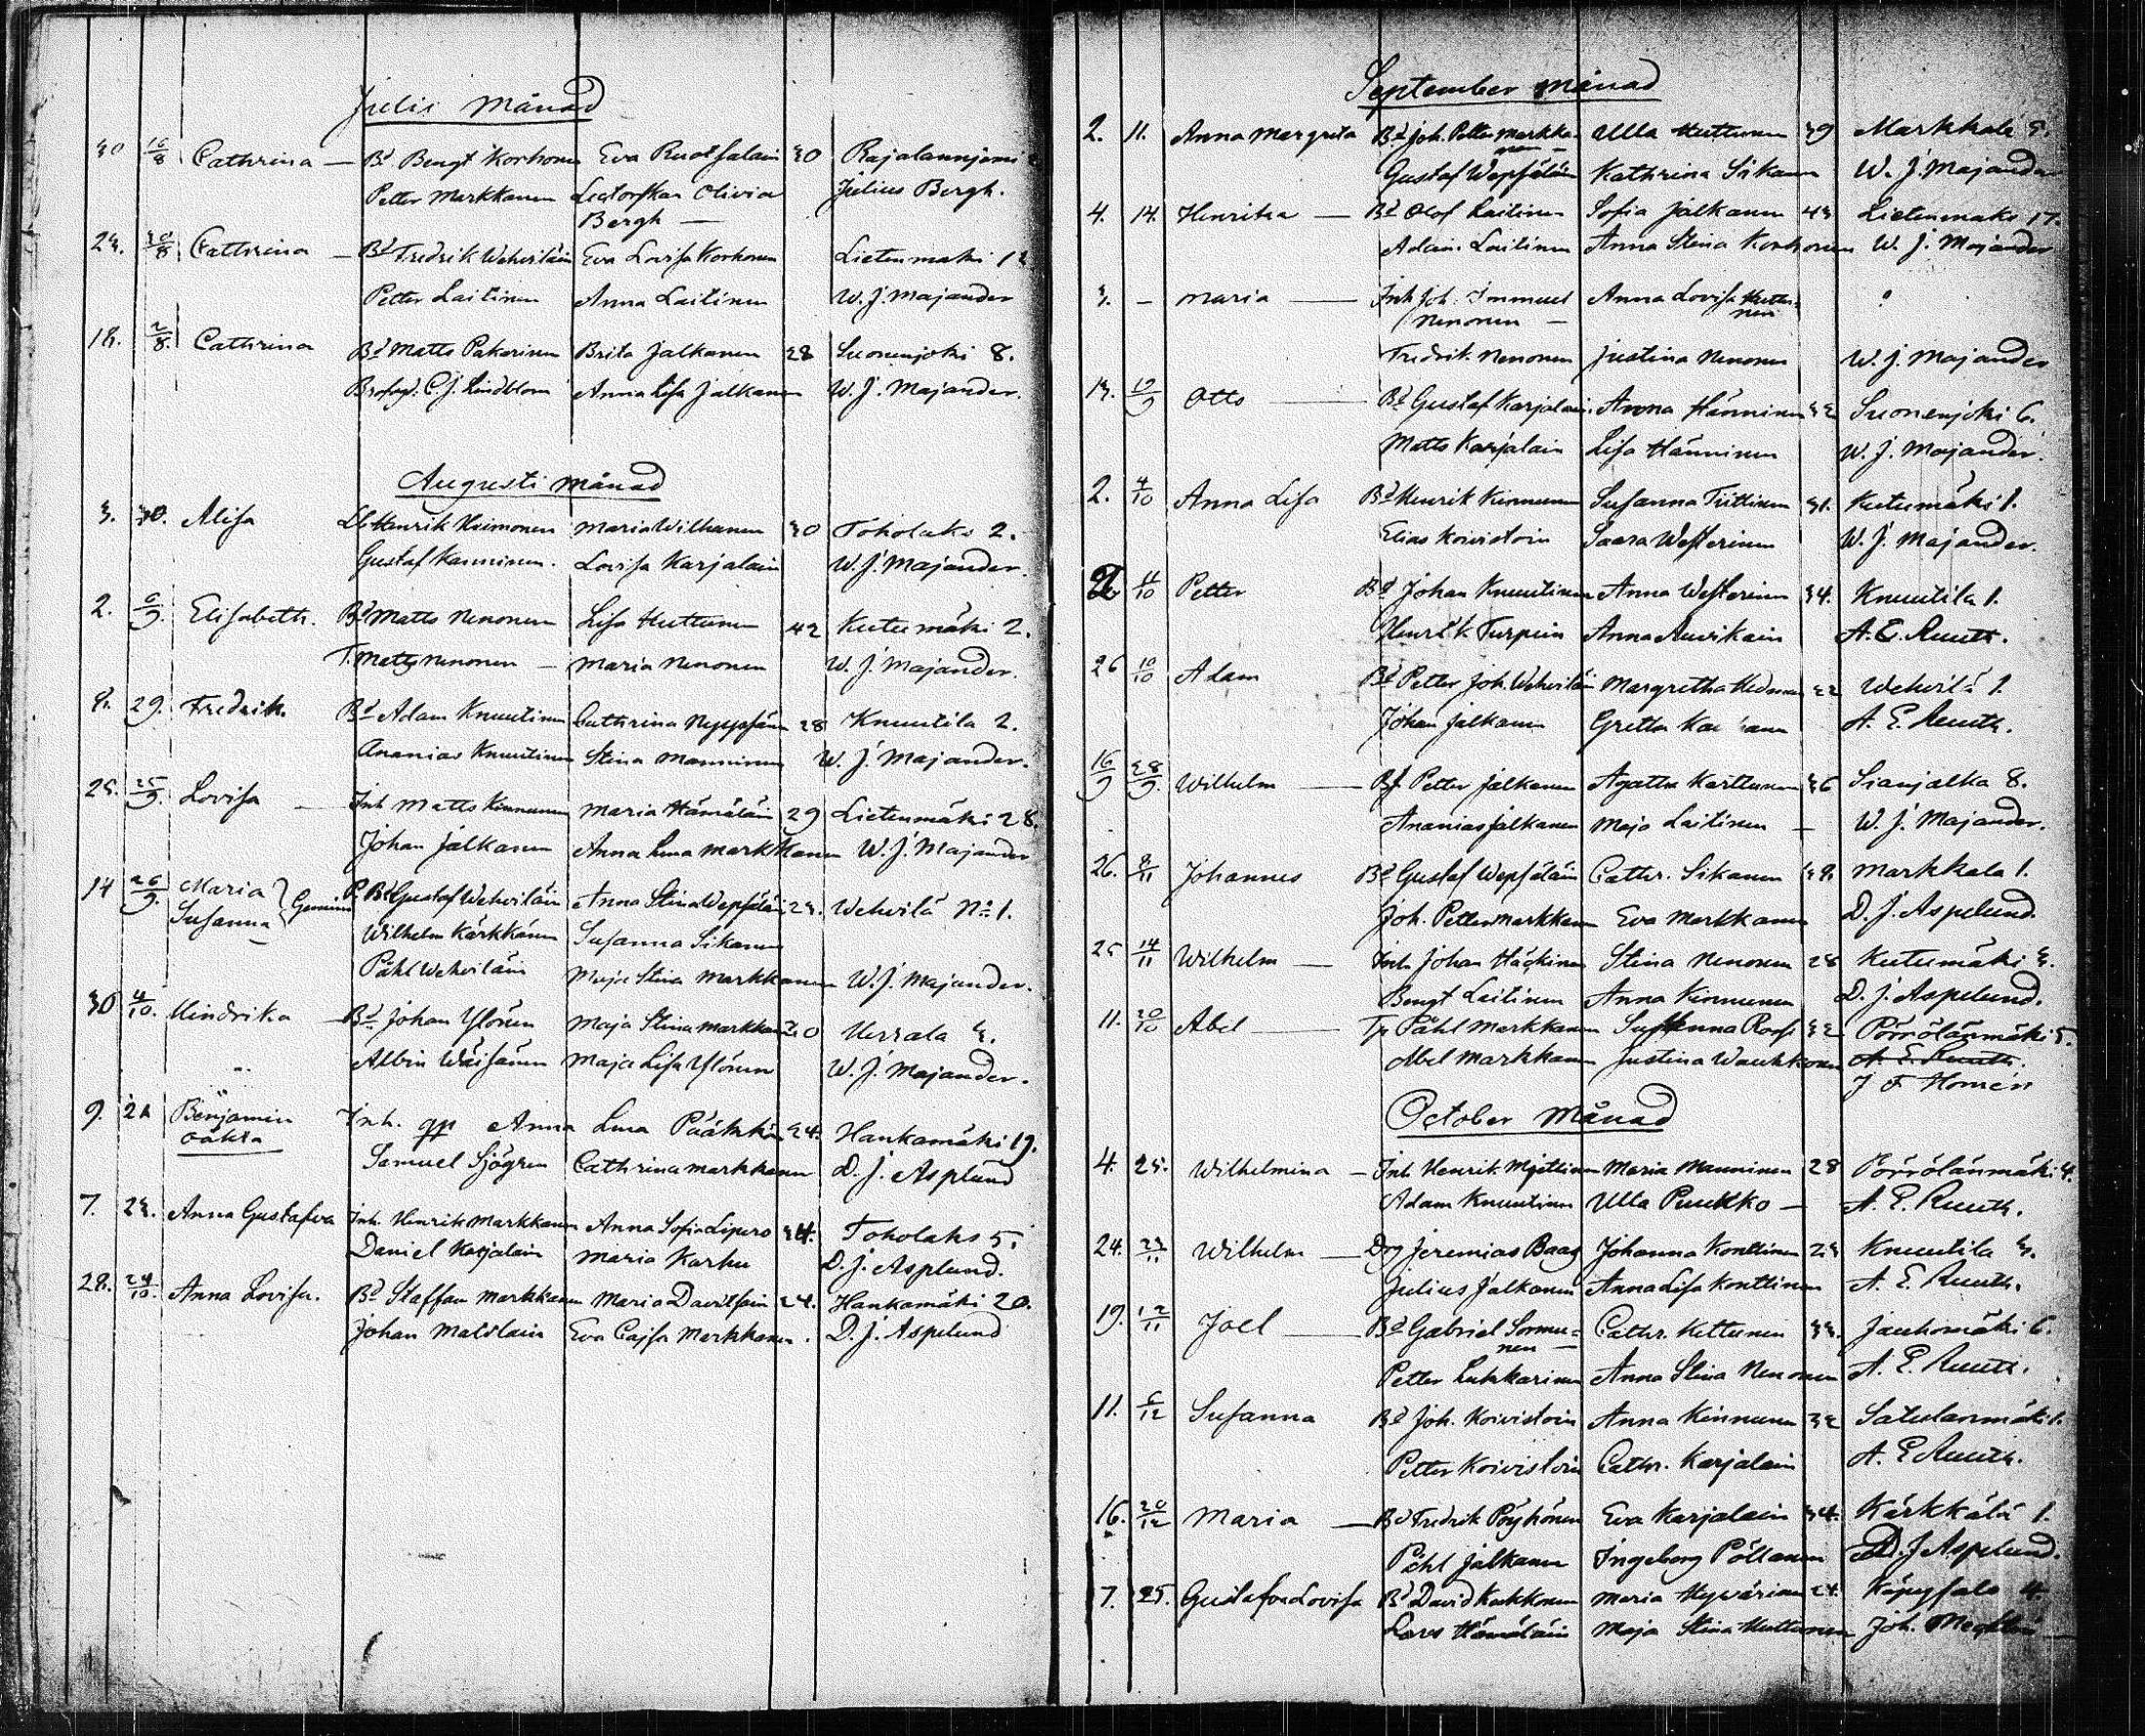 Julii Månad
30 16/8 Cathrina — Bd Bengt Korhonen Eva Ruotsalain 30 Rajalannjemi
Petter Markkanen Lectorskan Olivia Julius Bergh.
Bergh —
23. 30/8 Cathrina — Bd Fredrik Wehviläin Eva Lovisa Korhonen Lietenmaki 12
Petter Laitinen Anna Laitinen W. J. Majander
18. 2/8. Cathrina Bd Matts Pakarinen Brita Jalkanen 28 Suonenjoki 8.
C. J. Lindblom Anna Lisa Jalkanen W. J. Majander.
Augusti månad
3. 30. Alisa Henrik Heimonen Maria Wilhunen 30 Toholaks 2.
Gustaf Kanninen. Lovisa Karjalain W. J. Majander.
2. 6/9. Elisabeth. Bd Matts Nenonen Lisa Huttunen 42 Kutumäki 2.
T. Matts Nenonen — Maria Nenonen W. J. Majander.
8. 29. Fredrik. Bd Adam Knuutinen Cathrina Nyyssön 28 Knuutila 2.
Ananias Knuutinen Stina Manninen W. J. Majander.
25. 25/9. Lovisa — Inh Matts Kinnunen Maria Hämäläin 29 Lietenmäki 28.
Johan Jalkanen Anna Lena Markkanen W. J. Majander
14 26/9. Maria Bd Gustaf Wehviläin Anna Stina Wepsäläin 23. Wehvilä No 1.
Susanna
Wilhelm Kärkkänen Susanna Sikanen
Påhl Wehviläin Maja Stina Markkanen W. J. Majander.
30 4/10. Hindrika — Bd Johan Ylönen Maja Stina Markkan 30 Herrala 3.
Albin Wäisänen Maja Lisa Ylönen W. J. Majander.
9. 21 Benjamin Inh. qp Anna Lena Päätkkön 34. Hankamäki 19.
oäkta
Samuel Sjögren Cathrina Markkanen D. J. Asplund
7. 23. Anna Gustafva Inh. Henrik Markkanen Anna Sofia Lipero 34. Toholaks 5.
Daniel Karjalain Maria Karhu D. J. Asplund.
28. 24/10. Anna Lovisa. Bd Staffan Markkanen Maria Davidsain 24. Hankamäki 20.
Johan Matilain Eva Cajsa Markkanen. D. J. Aspelund
September månad
2. 11. Anna Margreta Bd Joh. Petter Markka- Ulla Huttunen 39 Markkala 9.
nen —
Gustaf Wepsäläin Kathrina Sikanen W. J. Majander
4. 14. Henrika — Bd Olof Laitinen Sofia Jalkanen 43 Lietenmaki 17.
Adam Laitinen Anna Stina Korhonen W. J. Majander
3. — Maria — Inh Joh. Immanuel Anna Lovisa Huttu-
Nenonen — nen
Fredrik Nenonen Justina Nenonen W. J. Majander
13. 19/9 Otto — Bd Gustaf Karjalain. Anna Hänninen 32 Suonenjoki 6.
Matts Karjalain Lisa Hänninen W. J. Majander.
2. 4/10 Anna Lisa Bd Henrik Kinnunen Susanna Tiittinen 31. Kutumäki 1.
Elias Koivistoin Saara Westerinen W. J. Majander.
11/10 Petter Bd Johan Knuutinen Anna Westerinen 34. Knuutila 1.
Henrik Turpein Anna Auvikain A. E. Ruuth.
26 10/10 Adam Bd Petter Joh. Wehviläin Margretha Hedman 22 Wehvilä 1.
Johan Jalkanen Gretta A. E. Ruuth.
16/9 28/9. Wilhelm — Bd Petter Jalkanen Agatha Karttunen 36 Sianjalka 8.
Ananias Jalkanen Maja Laitinen — W. J. Majander.
26. 8/11 Johannes Bd Gustaf Wepsäläin Cathr. Sikanen 39. Markkala 1.
Joh. Petter Markkanen Eva Markkanen D. J. Aspelund.
25 14/11 Wilhelm — Inh Johan Häckinen Stina Nenonen 28 Kutumäki 3.
Bengt Laitinen Anna Kinnunen D. J. Aspelund.
11. 20/10 Abel — Tp Påhl Markkanen Susanna Roos 32 Pörrölänmäki 5.
Abel Markkanen Justina Wauhkonen A. E. Ruuth.
J F Homén
October Månad
4. 25. Wilhelmina — Inh Henrik Miettinen Maria Manninen 28 Pörrölänmäki 4.
Adam Knuutinen Ulla Puukko — A. E. Ruuth.
24. 23/11 Wilhelm — Drg Jeremias Baag Johanna Konttinen 23 Knuutila 3.
Julius Jalkanen Anna Lisa Konttinen A. E. Ruuth.
19. 12/11 Joel — Bd Gabriel Sormu- Cathr. Kettunen 33. Jauhomäki 6.
nen —
Petter Lukkarinen Anna Stina Nenonen A. E. Ruuth.
11. 6/12 Susanna Bd Joh. Koivistoin Anna Kinnunen 32 Satulanmäki 1.
Petter Koivistoin Cathr. Karjalain A. E Ruuth.
16. 20/12 Maria — Bd Fredrik Pöyhönen Eva Karjalain 34. Kärkkälä 1.
Påhl Jalkanen Ingeborg Pöllänen D. J Aspelund.
7. 25. Gustafva Lovisa Bd David Kukkonen Maria Hyvärinen 24. Käpysalo 4.
Lars Hämäläin Maja Stina Huttunen Joh.